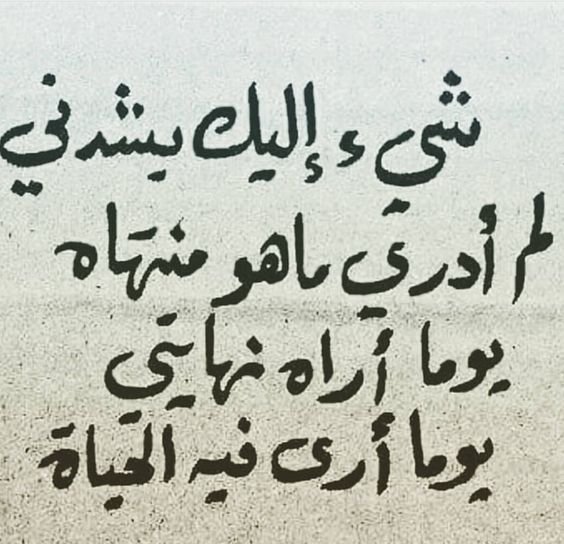 شيء إليك يشدني
لم أدري ماهو منتهاه
يوما أراه نهايتي
يوما أرى فيه الحياة